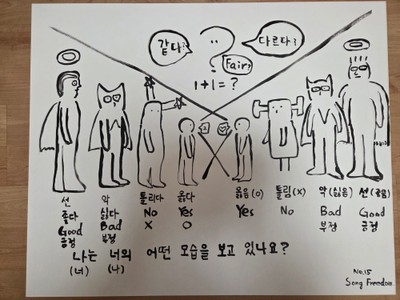 같다?
다르다?
?
Fair?
1+1=?
선 악 틀리다 옳다 옳음(O) 틀림(X) 악(싫음) 선(좋음)
좋다 싫다 No Yes Yes No Bad Good
Good Bad X O 부정 긍정
긍정 부정
나는 너의 어떤 모습을 보고 있나요?
(너) (나)
No.15
Song Freedom